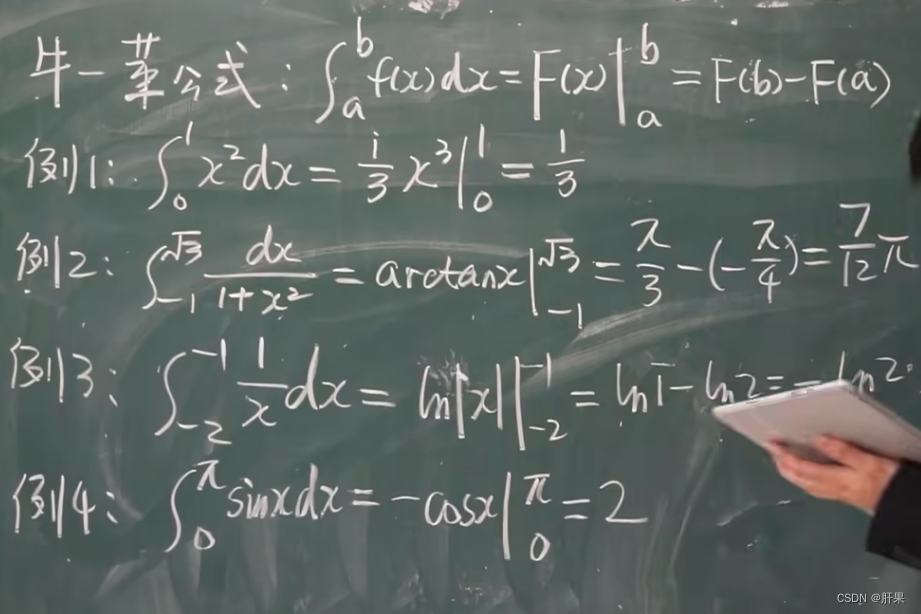 牛-莱公式: ∫_a^b f(x)dx = F(x)|_a^b = F(b)-F(a)
例1: ∫_0^1 x²dx = 1/3 x³|_0^1 = 1/3
例2: ∫_{-1}^{√3} dx/(1+x²) = arctanx|_{-1}^{√3} = π/3 - (-π/4) = 7/12 π
例3: ∫_{-2}^{-1} 1/x dx = ln|x||_{-2}^{-1} = ln1 - ln2 = -ln2.
例4: ∫_0^π sinxdx = -cosx|_0^π = 2
CSDN @肝果